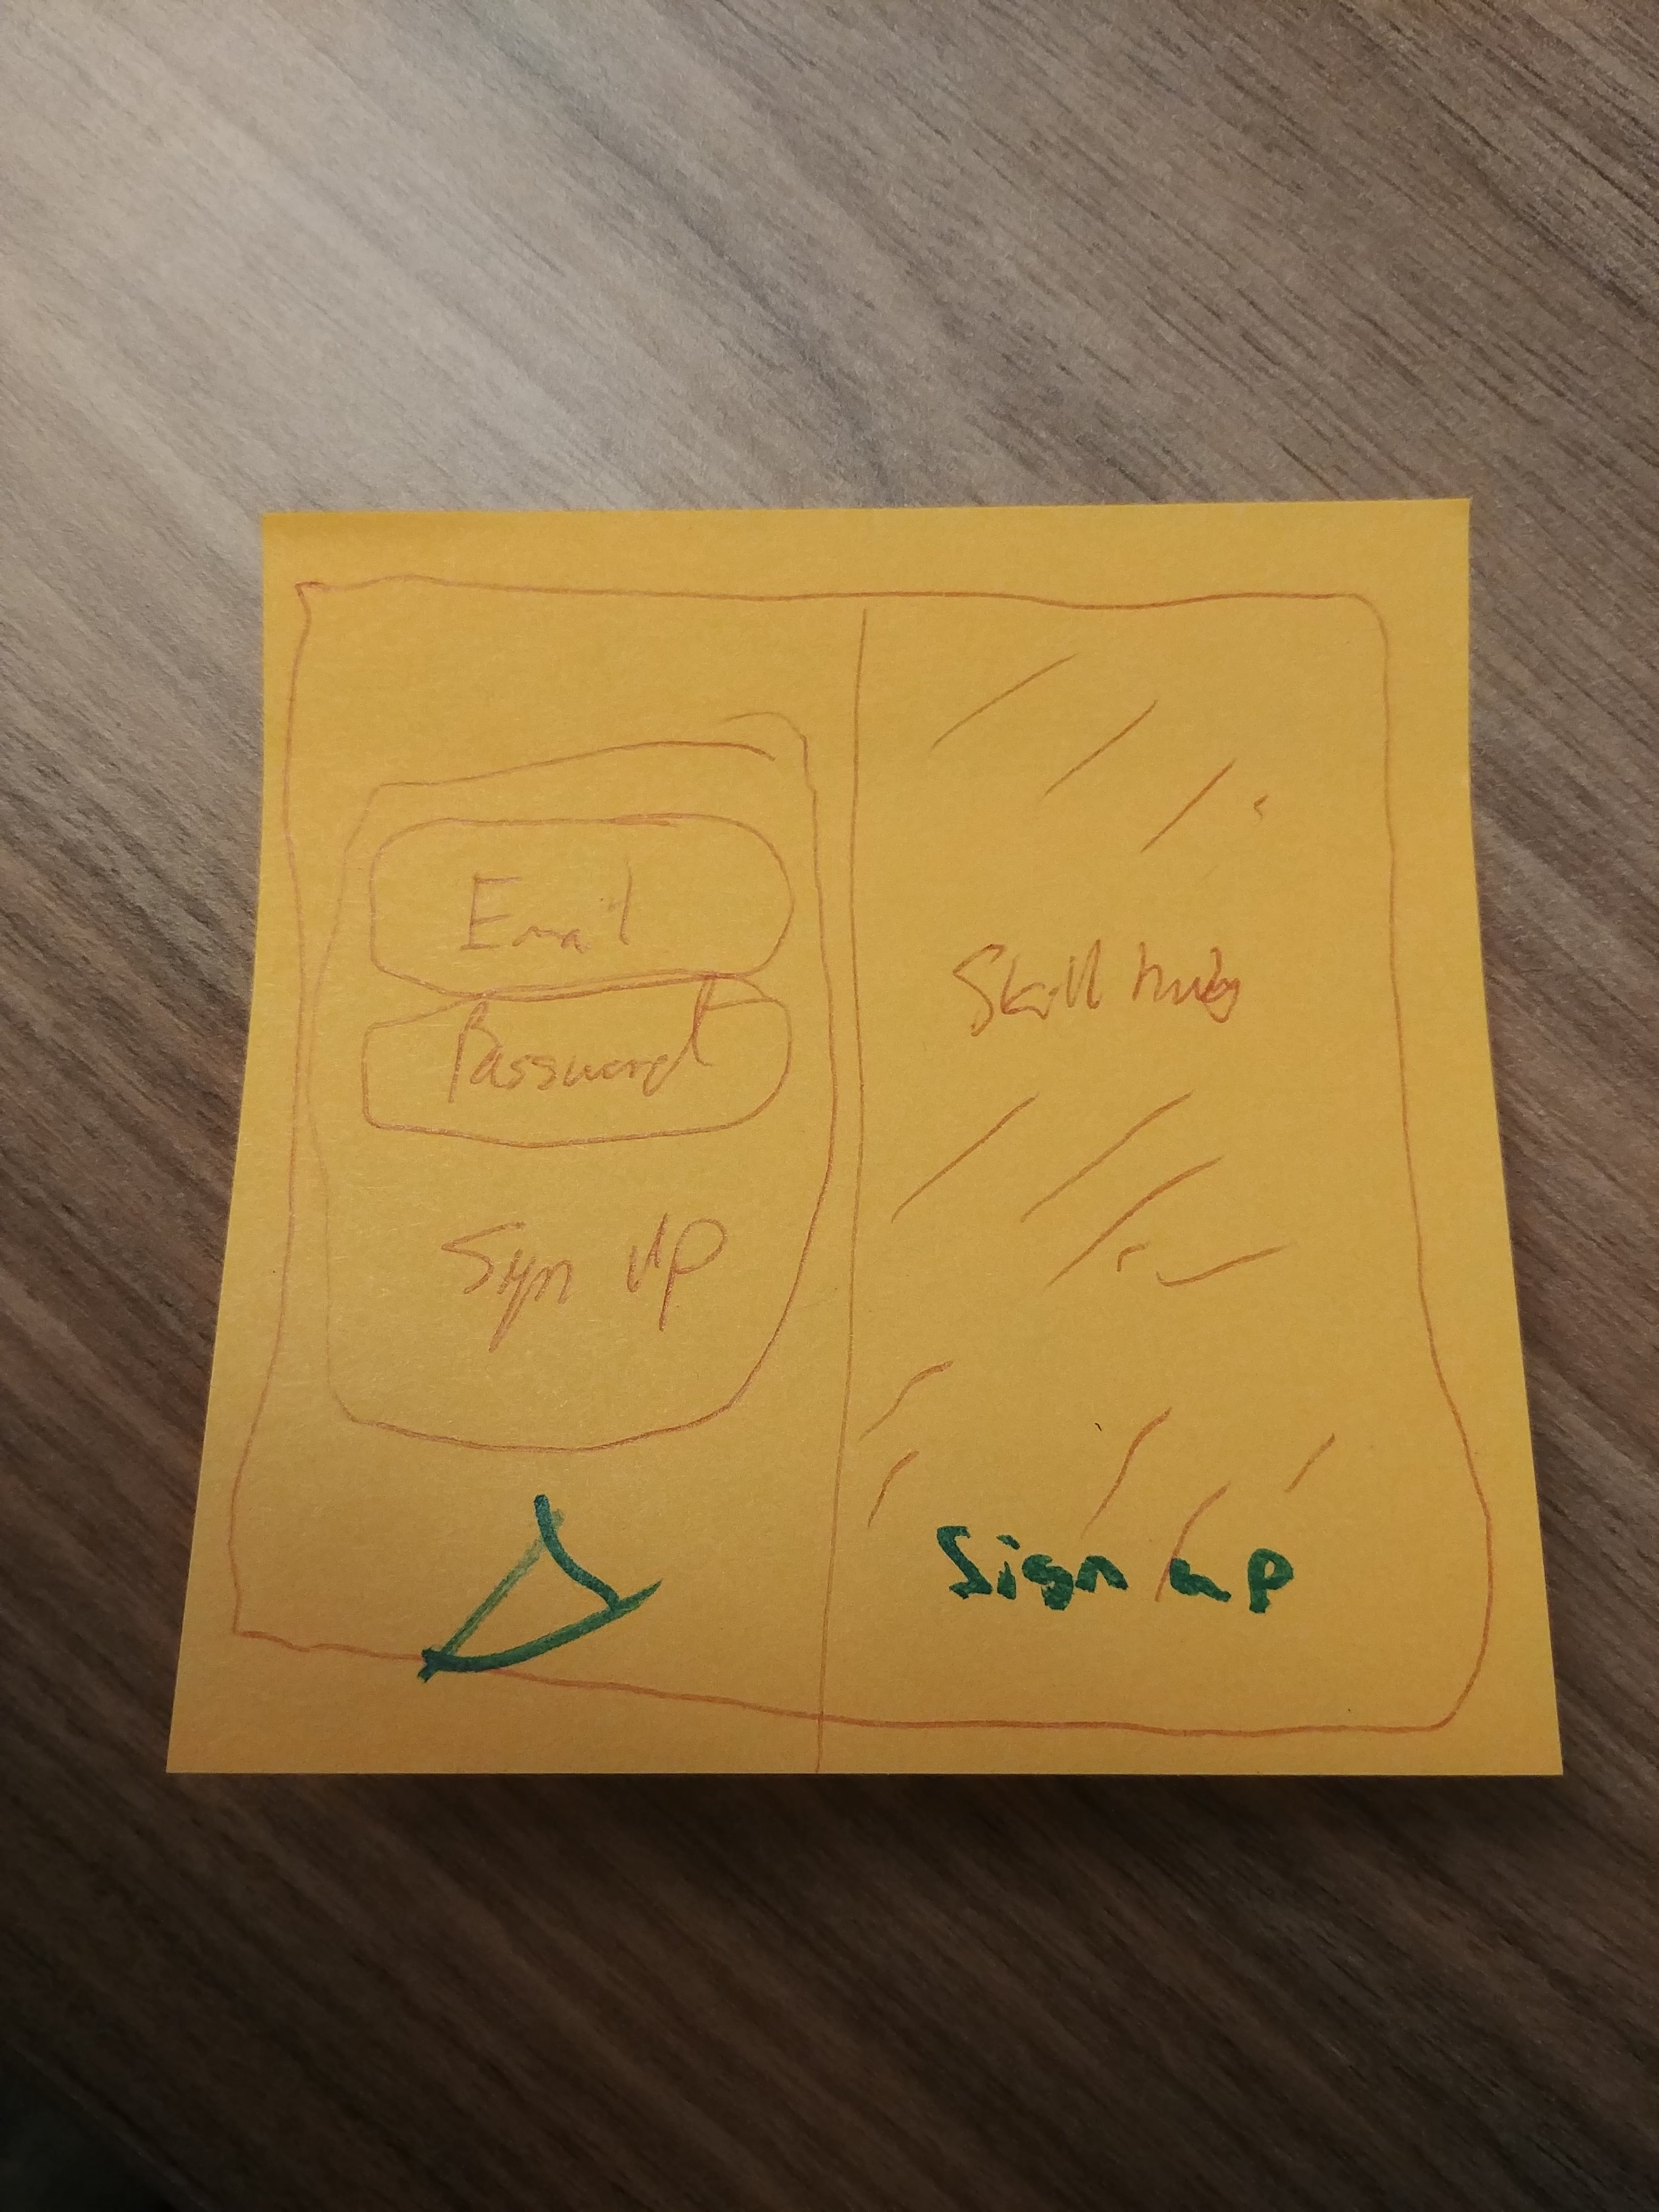 Email
Password
Sign up
Skill hub
Sign up